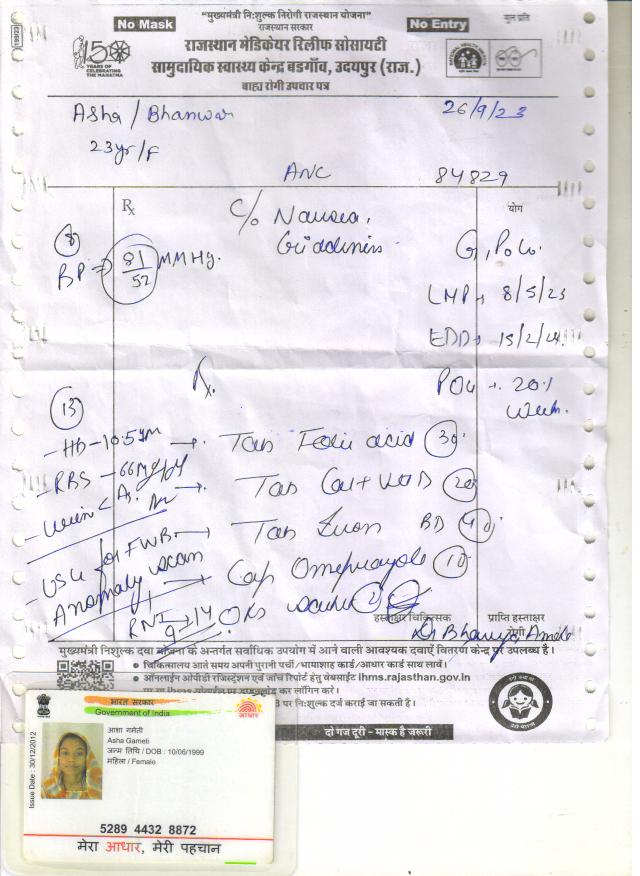 "मुख्यमंत्री नि:शुल्क निरोगी राजस्थान योजना"
No Mask
No Entry
मूल प्रति
राजस्थान सरकार
राजस्थान मेडिकेयर रिलीफ सोसायटी
सामुदायिक स्वास्थ्य केन्द्र बडगाँव, उदयपुर (राज.)
बाह्य रोगी उपचार पत्र
150
YEARS OF
CELEBRATING
THE MAHATMA
Asha / Bhanwar
26/9/23
23yr/F
ANC
84829
Rx
C/o Nausea,
Giddiness
योग
8
BP → 81/52 MMHg.
G1P0L0
LMP → 8/5/23
EDD → 15/2/24
POG → 20.1
week.
Rx
13
- Hb - 10.5gm → Tab Folic acid 30
- RBS - 66mg/dl → Tab Cal + Vit D 20
- Urine C A. → Tab Iron BD
- USG for FWB →
Anomaly scan → Cap Omeprazole 10
ORS
हस्ताक्षर चिकित्सक
प्राप्ति हस्ताक्षर
रोगी
मुख्यमंत्री निःशुल्क दवा योजना के अन्तर्गत सर्वाधिक उपयोग में आने वाली आवश्यक दवाऐं वितरण केन्द्र पर उपलब्ध है।
• चिकित्सालय आते समय अपनी पुरानी पर्ची / भामाशाह कार्ड / आधार कार्ड साथ लावें।
• ऑनलाईन ओपीडी रजिस्ट्रेशन एवं जांच रिपोर्ट हेतु वेबसाईट ihms.rajasthan.gov.in
कर लॉगिन करें।
पर नि:शुल्क दर्ज कराई जा सकती है।
दो गज दूरी - मास्क है जरूरी
भारत सरकार
Government of India
आधार
Issue Date : 30/12/2012
आशा गमेती
Asha Gameti
जन्म तिथि / DOB : 10/06/1999
महिला / Female
5289 4432 8872
मेरा आधार, मेरी पहचान